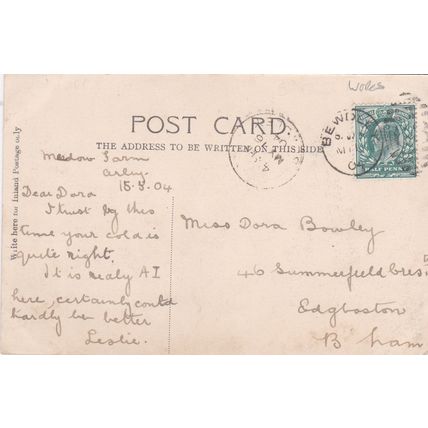 WORCS
POST CARD.
THE ADDRESS TO BE WRITTEN ON THIS SIDE
Write here to Inland Postage only
Meadow Farm
Arley.
15.8.04
Dear Dora
I trust by this
time your cold is
quite right.
It is realy A I
here, certainly could
hardly be better
Leslie.
BEWDLEY
HALF PENNY
Miss Dora Bowley
46 Summerfield Cres
Edgbaston
B'ham